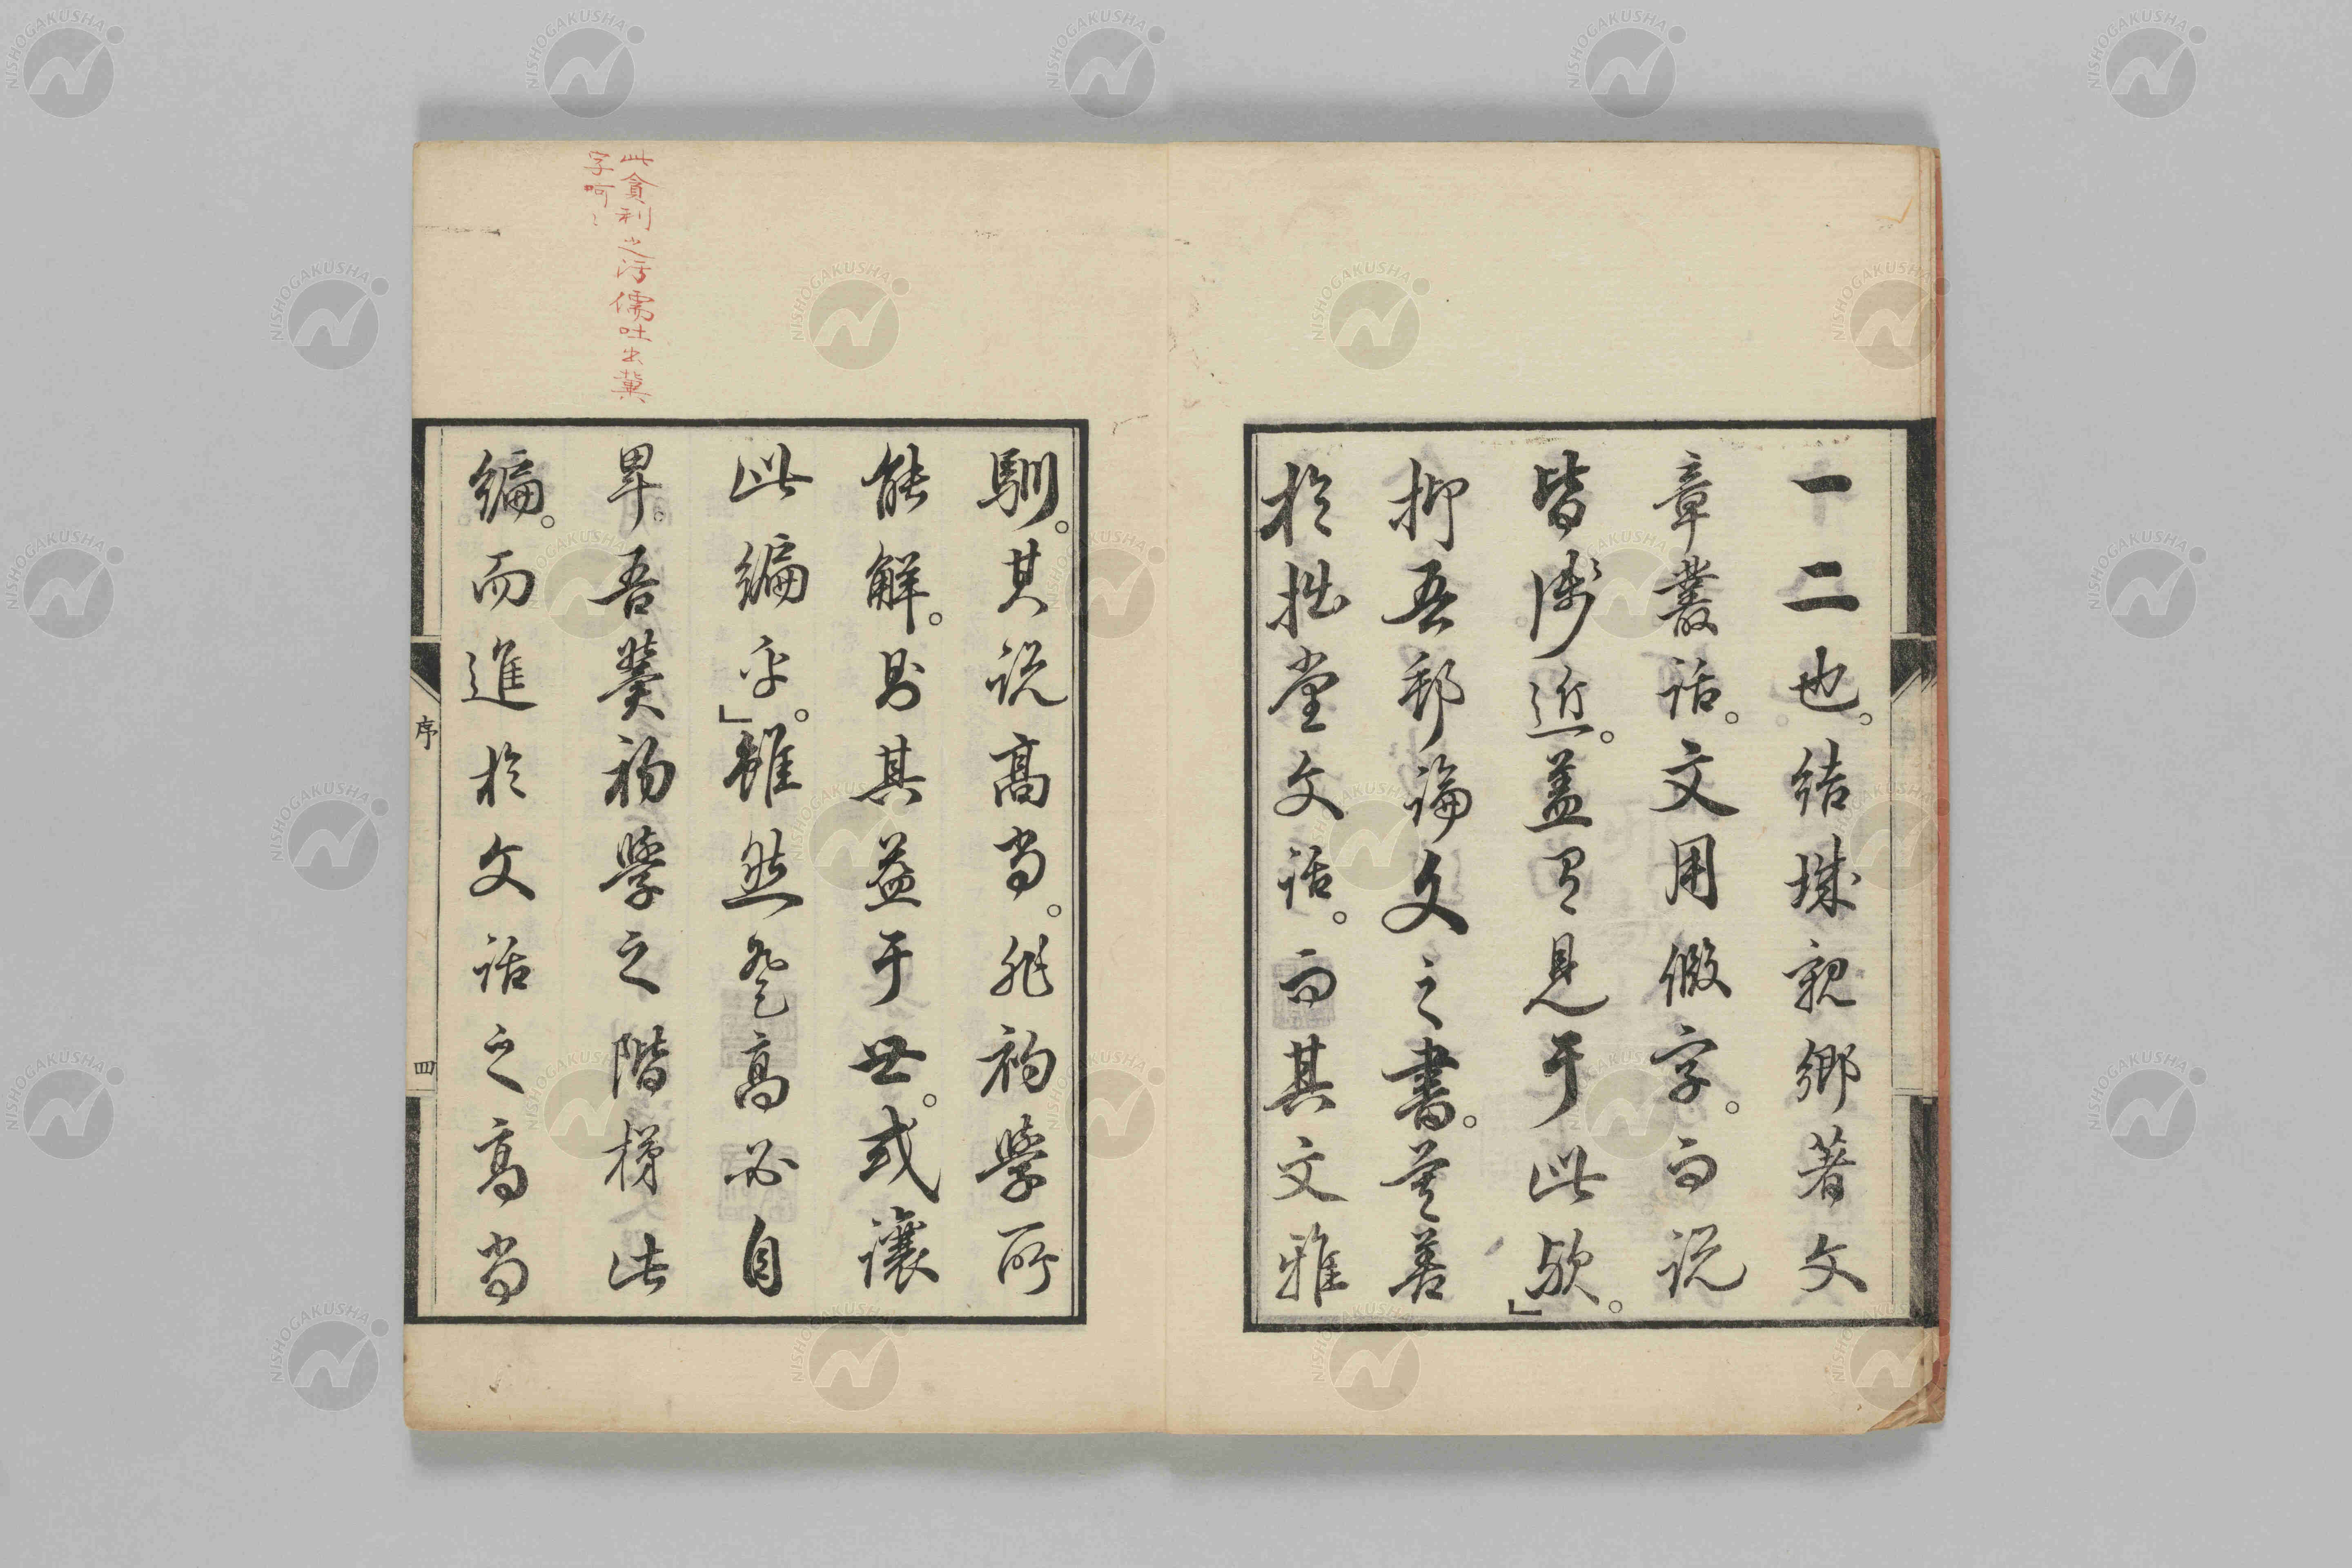 一二也。結城親鄉著文
章叢話。文用假字。而說
皆淺近。蓋有見于此歟。」
抑吾邦論文之書。莫善
於拙堂文話。而其文雅
馴。其說高尚。非初學所
能解。則其益于世。或讓
此編乎。」雖然登高必自
卑。吾冀初學之階梯此
編。而進於文話之高尚
序
四
此貪利之汚儒吐出冀
字呵〻
NISHOGAKUSHA